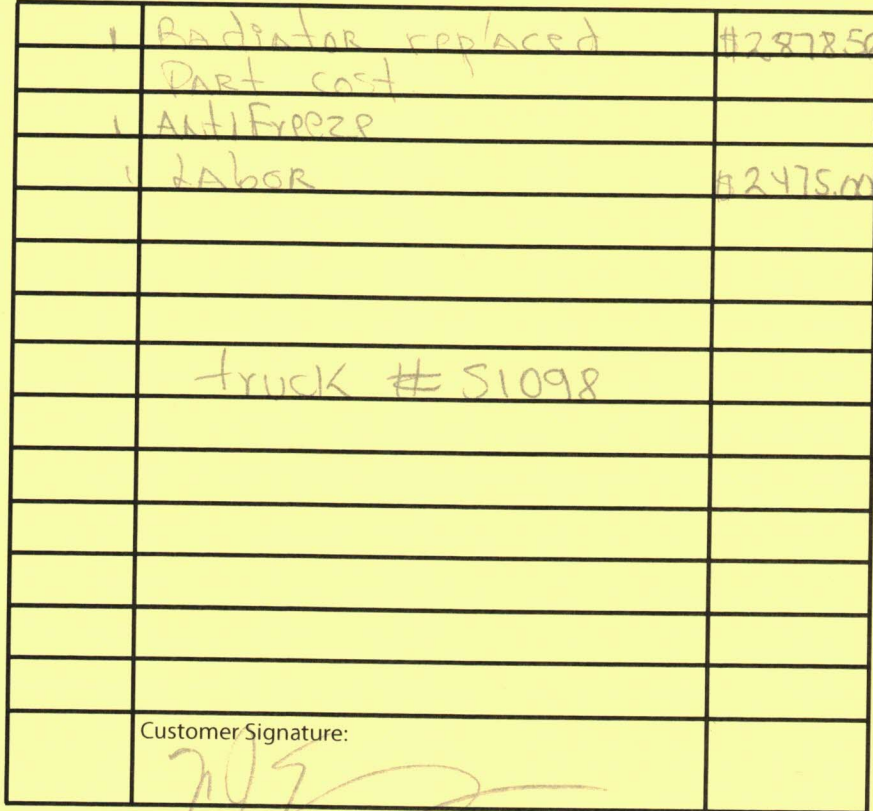 1 Radiator replaced $2878.50
Part cost
1 Antifreeze
1 Labor $2475.00
truck # S1098
Customer Signature: